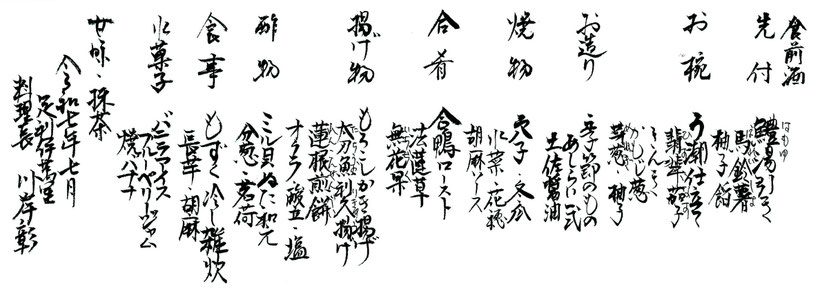 食前酒
先付
鱧湯引き
はもゆ
馬鈴薯
柚子餡
お椀
うしお仕立て
翡翠茄子
そうめん
かもじ葱
芽葱 柚子
お造り
季節のもの
あしらい一式
土佐醤油
焼物
穴子・冬瓜
水菜・花穂
胡麻ソース
合肴
合鴨ロースト
法蓮草
無花果
揚げ物
もろこしかき揚げ
太刀魚利久揚げ
蓮根煎餅
オクラ 酸立・塩
酢物
ミル貝ぬた和え
分葱・茗荷
食事
もずく冷し雑炊
長芋・胡麻
水菓子
バニラアイス
ブルーベリージャム
焼バナナ
甘味・抹茶
令和七年七月
足利伊萬里
料理長 川岸彰